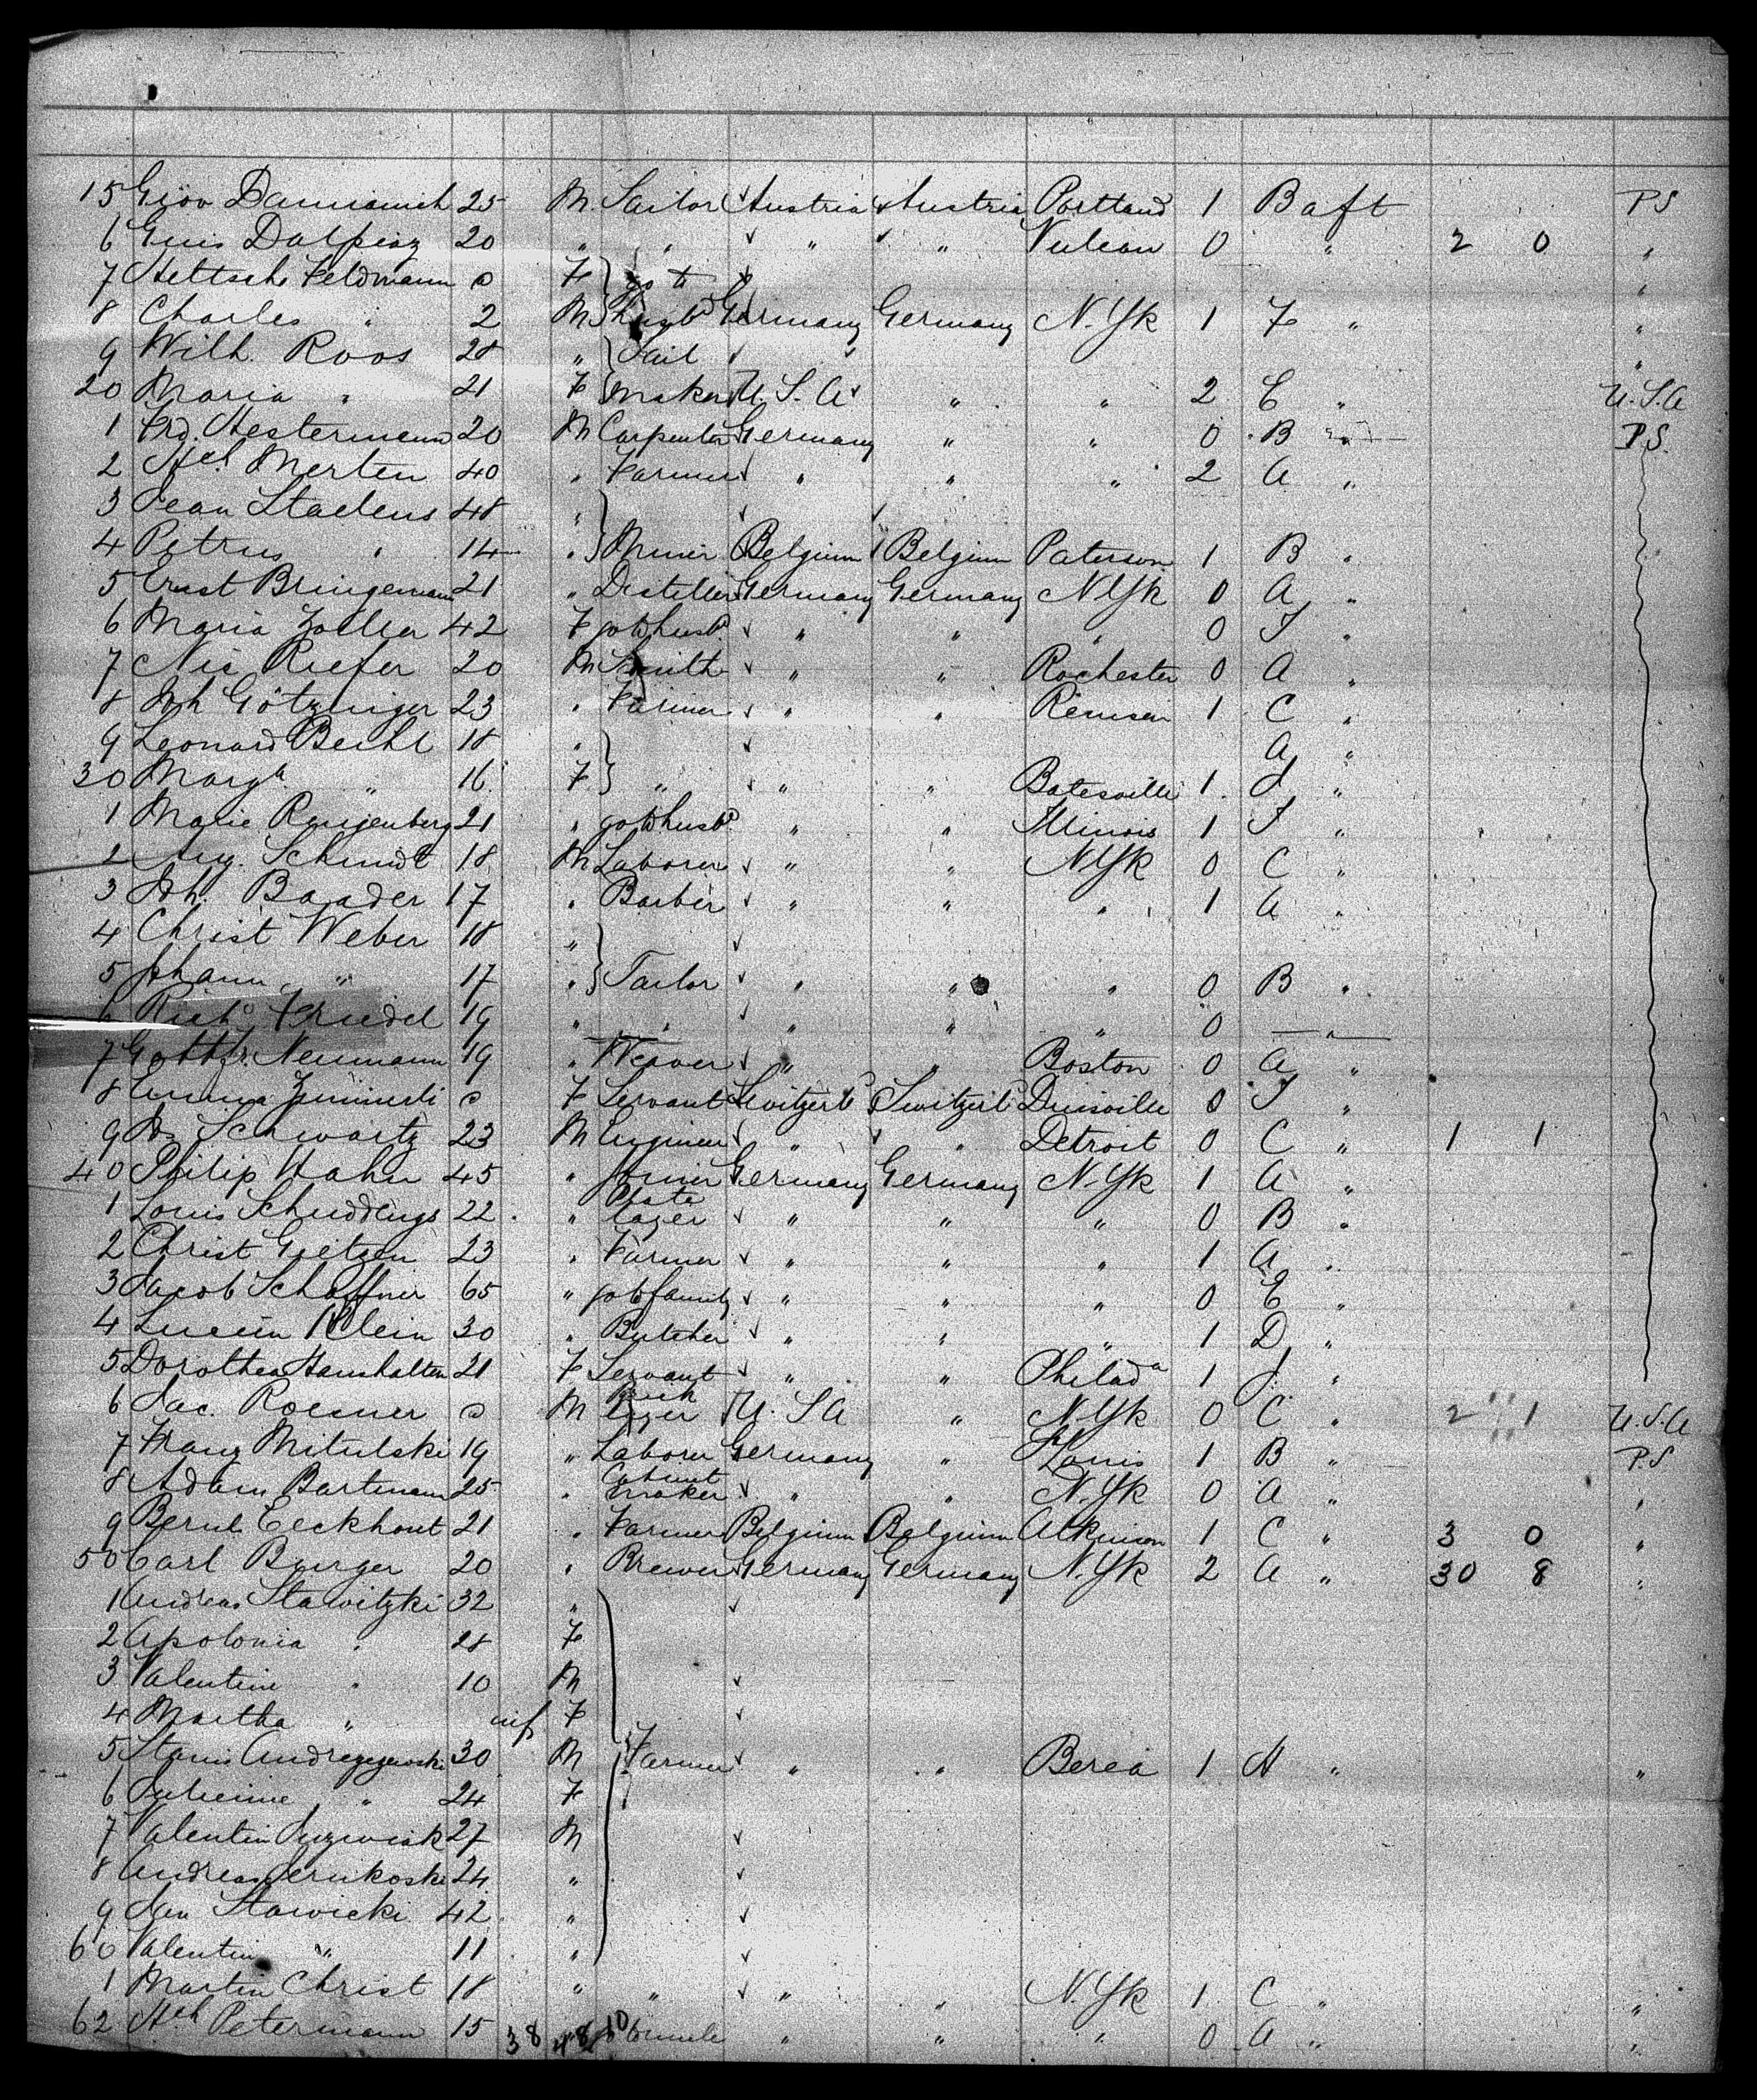 15 Giov Damianich 25 M. Sailor Austria Austria Portland 1 B aft PS
6 Guis Dalpiaz 20 " " " " Vulcan 0 " 2 0 "
7 Feldmann 0 F go to "
8 Charles " 2 M husbd Germany Germany N.Yk 1 F " "
9 Wilh. Roos 28 " Sail "
20 Maria " 21 F maker U.S.A " " 2 E " U.S.A
1 Frd. Hestermann 20 M Carpenter Germany " " 0 B " P.S.
2 Merten 40 " Farmer " " " 2 A "
3 Jean Staelens 48 "
4 Petrus " 14 " Miner Belgium Belgium Paterson 1 B "
5 Ernst Bringemann 21 " Distiller Germany Germany NYk 0 A "
6 Maria Zoller 42 F go to husbd " " " 0 J "
7 Nic Kiefer 20 M Smith " " Rochester 0 A "
8 Joh Götzinger 23 " Farmer " " Remsen 1 C "
9 Leonard Bechl 18 " A "
30 Margh " 16 F " " " Batesville 1 J "
1 Marie Rungenberg 21 " go to husbd " " Illinois 1 J "
2 Aug. Schmidt 18 M Laborer " " NYk 0 C "
3 Joh. Baader 17 " Barber " " " 1 A "
4 Christ Weber 18 "
5 Johann " 17 " Tailor " " " 0 B "
6 Richd Friedel 19 " " " " " 0 "
7 Gottfr. Neumann 19 " Weaver " " Boston 0 A "
8 Zimmerli 0 F Servant Switzerld Switzerld 0 J "
9 Schwartz 23 M Engineer " " Detroit 0 C " 1 1
40 Philip Hahn 45 " Joiner Germany Germany N.Yk 1 A "
1 Louis Schuddings 22 " " " " 0 B "
2 Christ Gietzen 23 " Farmer " " " 1 A "
3 Jacob Schaffner 65 " go to family " " " 0 E "
4 Lucien Klein 30 " Butcher " " " 1 D "
5 Dorothea Haushalten 21 F Servant " " Philada 1 J "
6 Jac. Roesner 0 M U.S.A " N.Yk 0 C " 2 1 U.S.A
7 Franz Mitulski 19 " Laborer Germany " St Louis 1 B " P.S
8 Adam Bartmann 25 " Cabinet maker " " N.Yk 0 A " "
9 Bernh Eeckhout 21 " Farmer Belgium Belgium Atkinson 1 C " 3 0 "
50 Carl Burger 20 " Brewer Germany Germany N.Yk 2 A " 30 8 "
1 Andreas Stawitzki 32 "
2 Apolonia " 28 F
3 Valentine " 10 M
4 Martha " inf F
5 Stanis 30 M Farmer " " Berea 1 H " "
6 Julienne " 24 F
7 Valentin 27 M
8 Andreas 24 "
9 Jan Stawicki 42 "
60 Valentin " 11 "
1 Martin Christ 18 " " " " N.Yk 1 C " "
62 Hch Petermann 15 38 48 10 " " " 0 A " "